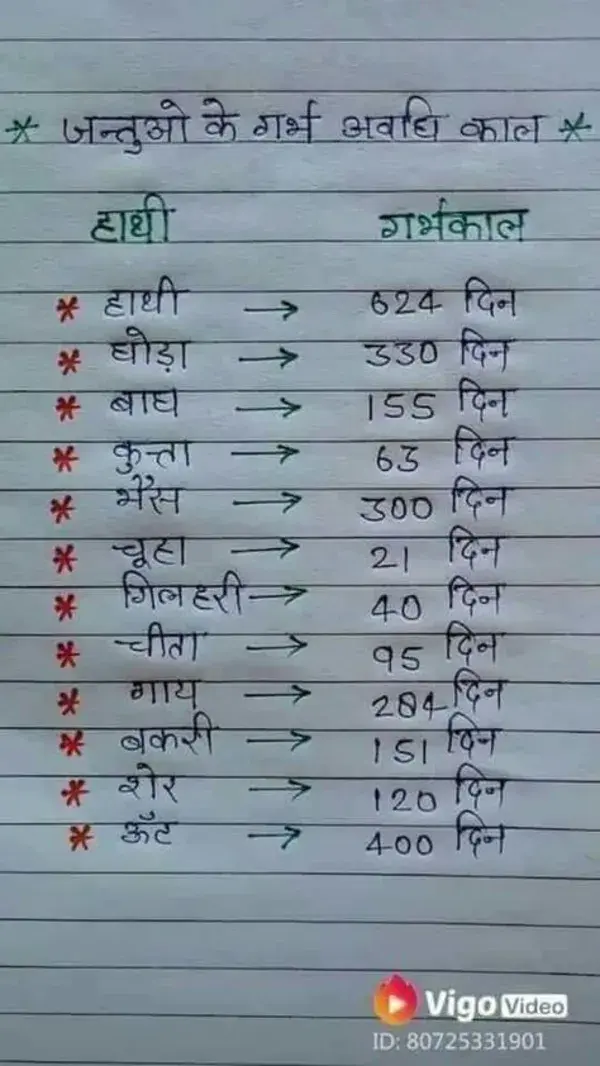 * जन्तुओ के गर्भ अवधि काल *
हाथी गर्भकाल
* हाथी → 624 दिन
* घोड़ा → 330 दिन
* बाघ → 155 दिन
* कुत्ता → 63 दिन
* भैंस → 300 दिन
* चूहा → 21 दिन
* गिलहरी → 40 दिन
* चीता → 95 दिन
* गाय → 284 दिन
* बकरी → 151 दिन
* शेर → 120 दिन
* ऊँट → 400 दिन
Vigo Video
ID: 80725331901